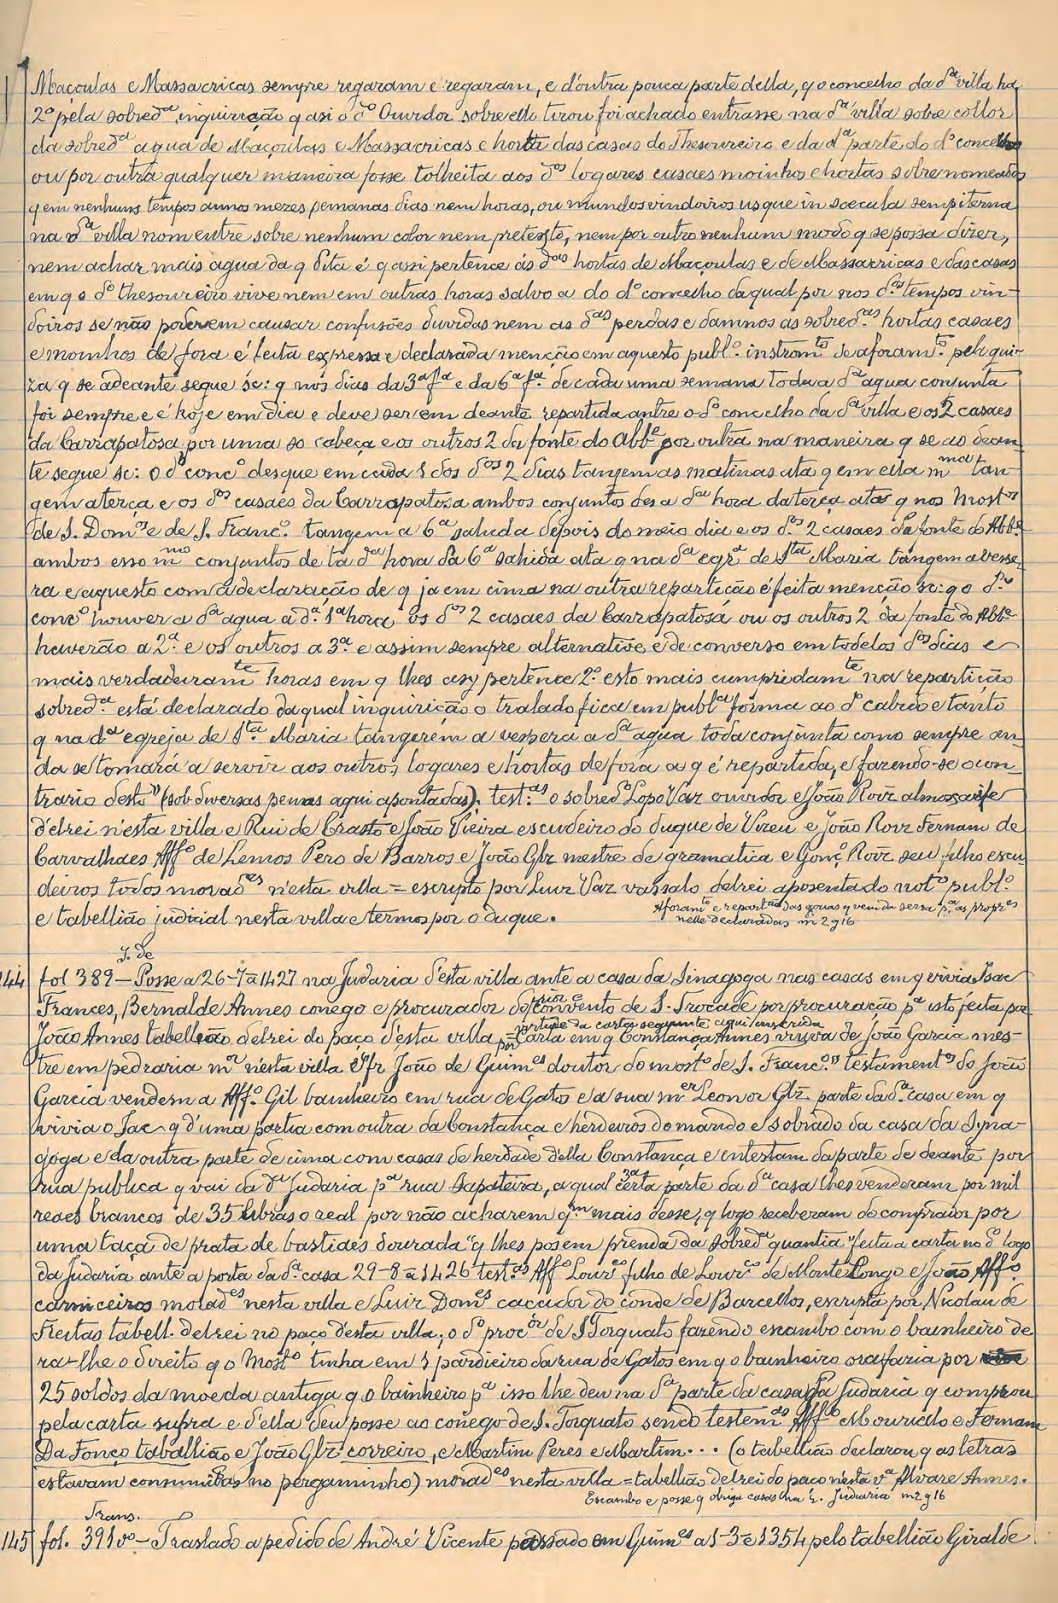 Maçoulas e Massacricas sempre regaram e regaram, e d'outra pouca parte della, q o concelho da dª villa ha
2º pela sobredª inquirição q asi o dº Ouvidor sobre ello tirou foi achado entrasse na dª villa sobre collor
da sobredª agua de Maçoulas e Massacricas e horta das casas do Thesoureiro e da dª parte do dº concelho
ou por outra qualquer maneira fosse tolheita aos dos logares casaes moinhos e hortas sobre nomeados
q em nenhuns tempos annos mezes somanas dias nem horas, ou mundos vindoiros usque in saecula sempiterna
na dª villa nom entre sobre nenhum color nem pretexto, nem por outro nenhum modo q se possa dizer,
nem achar mais agua da q dita é q assi pertence ás das hortas de Maçoulas e de Massacricas e das casas
em q o dº thesoureiro vive nem em outras horas salvo a do dº concelho da qual por nos dos tempos vin-
doiros se não poderem causar confusões duvidas nem as das perdas e damnos as sobredas hortas casaes
e moinhos de fora é feita expressa e declarada menção em aquesto publº instromto se aforamto pela gui-
za q se adeante segue sc: q nos dias da 3ª fª e da 6ª fª de cada uma semana toda a dª agua conjunta
foi sempre e é hoje em dia e deve ser em deante repartida antre o dº concelho da dª villa e os 2 casaes
da Carrapatosa por uma so cabeça e os outros 2 da fonte do Abbe por outra na maneira q se ao dean-
te segue sc: o dº concº desque em cada 1 dos dos 2 dias tangem as matinas ata q em ella mma tan-
gem a terça e os dos casaes da Carrapatosa ambos conjuntos des a dª hora da terça ata q nos Mostos
de S. Domos e de S. Francº tangem a 6ª sahida depois do meio dia e os dos 2 casaes da fonte do Abbe
ambos esso mmo conjuntos de la dª hora da 6ª sahida ata q na dª egrª de Sta Maria tangem a vespe-
ra e aquesto com a declaração de q ja em cima na outra repartição é feita menção sc: q o dº
concº houver a dª agua a dª 1ª hora os dos 2 casaes da Carrapatosa ou os outros 2 da fonte do Abbe
haverão a 2ª e os outros a 3ª e assim sempre alternative e de converso em todelos dos dias e
mais verdadeiramte horas em q lhes asy pertence 2º esto mais cumpridamte na repartição
sobredª está declarado da qual inquirição o tralado fica em publª fórma ao dº cabido e tanto
q na dª egreja de Sta Maria tangerem a vespera a dª agua toda conjunta como sempre an-
da se tornará a servir aos outros logares e hortas de fora a q é repartida, e fazendo-se o con-
trario desto (sob diversas penas aqui apontadas). testas o sobredº Lopo Vaz ouvidor e João Roiz almoxarife
d'elrei n'esta villa e Rui de Crasto e João Vieira escudeiro do duque de Vizeu e João Roiz Fernam de
Carvalhaes Affº de Lemos Pero de Barros e João Glz mestre de gramatica e Gonçº Roiz seu filho escu-
deiros todos morades n'esta villa = escripto por Luiz Vaz vassalo delrei aposentado noto publº
e tabellião judicial nesta villa e termos por o duque.
Aforamto e repartão das agoas q vem da serra pª as propres
nelle declaradas m 2 g 16
J. de
144 fol 389 – Posse a 26-7-a 1427 na Judaria d'esta villa ante a casa da Sinagoga nas casas em q vivia Isac
Frances, Bernalde Annes conego e procurador do prior e convento de S. Trocade por procuração pª isto feita por
João Annes tabellião delrei do paço d'esta villa por carta em q Constança Annes viuva de João Garcia mes-
virtude da cartas seguinte aqui inserida
tre em pedraria mor nésta villa e fr João de Guimes doutor do mosto de S. Francº testamentos do João
Garcia vendem a Affº Gil bainheiro em rua de Gatos e a sua mer Leonor Glz parte da dª casa em q
vivia o Isac q d'uma partia com outra da Constança e herdeiros do marido e sobrado da casa da Syna-
goga e da outra parte de cima com casas da herdade d'ella Constança e entestam da parte de deante por
rua publica q vai da dª Judaria pª rua Sapateira, a qual certa parte da dª casa lhes venderam por mil
reaes brancos de 35 libras o real por não acharem qm mais desse, q logo receberam do comprador por
uma taça de prata de bastiães dourada "q lhes pos em prenda da sobredª quantia" feita a carta no dº logo
da Judaria ante a porta da dª casa 29-8-a 1426 testas Affº Lourço filho de Lourço de Monte Longo e João Affº
carniceiros morades nesta villa e Luiz Domes caçador do conde de Barcellos, escripta por Nicolau de
Freitas tabell. delrei no paço d'esta villa; o dº procor de S Torquato fazendo escambo com o bainheiro de
ra-lhe o direito q o Mosto tinha em 1 pardieiro da rua de Gatos em q o bainheiro ora fazia por
25 soldos da moeda antiga q o bainheiro pª isso lhe deu na dª parte da casa da Judaria q comprou
pela carta supra e d'ella deu posse ao conego de S. Torquato sendo testemas Affº Mourisco e Fernam
Da Fonço taballião e João Glz correiro, e Martim Peres e Martim... (o tabellião declarou q as letras
estavam consumidas no pergaminho) morades nesta villa = tabellião delrei do paço nésta vª Alvare Annes.
Escambo e posse q obriga casas na r. Judiaria m 2 g 16
Trans.
145 fol. 391 vº – Traslado a pedido de André Vicente passado em Guimes a 1-3-e 1354 pelo tabellião Giralde